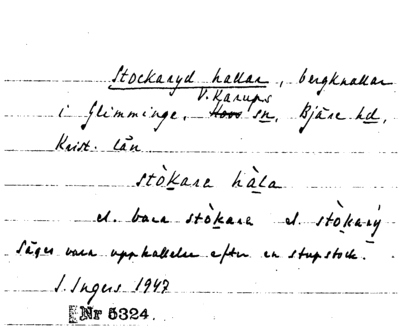 Stockaryd hallar, bergknallar
V. Karups
i Glimminge, Hovs sn, Bjäre hd,
Krist. län
stòkara hàla
el. bara stòkara el. stòkarý
Säges vara uppkallelse efter en stupstock.
I. Ingers 1947
Nr 5324.